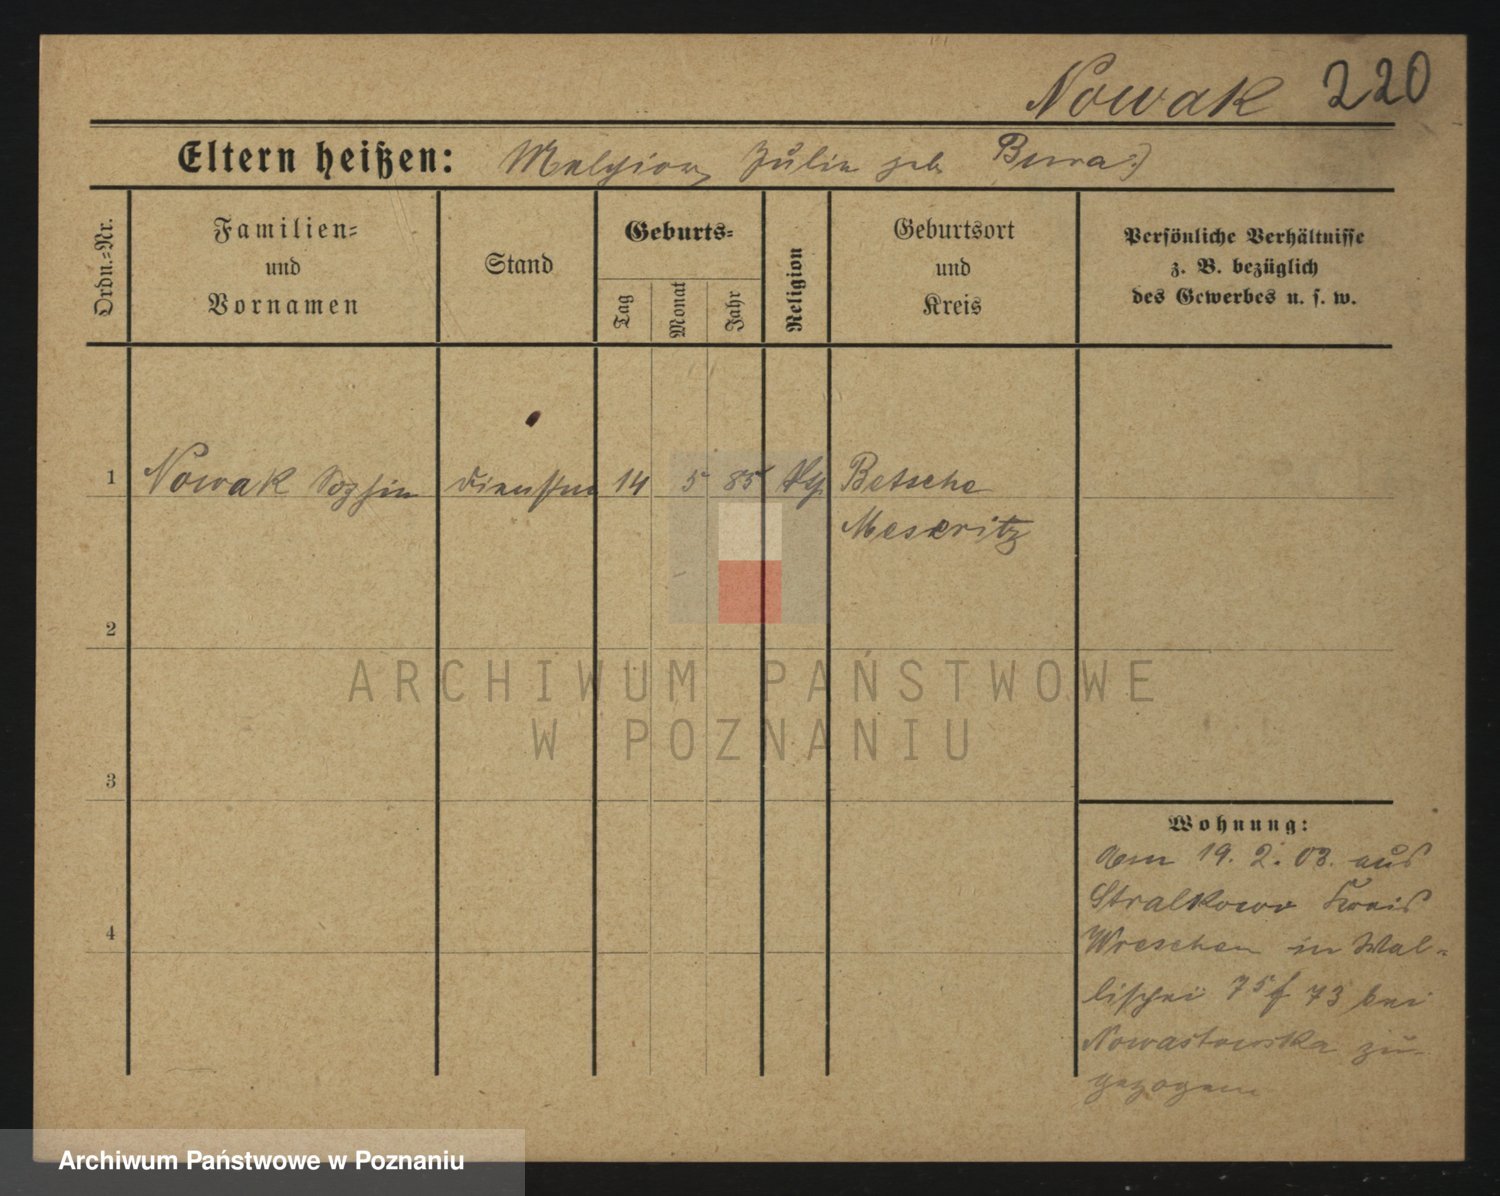 Nowak 220
Eltern heißen: Melchior, Julie geb Buras
Ordn.-Nr.
Familien-
und
Vornamen
Stand
Geburts-
Tag
Monat
Jahr
Religion
Geburtsort
und
Kreis
Persönliche Verhältnisse
z. B. bezüglich
des Gewerbes u. s. w.
1 Nowak Sophie 14 5 85 Betsche
Meseritz
2
3
4
Wohnung:
am 19. 2. 03. aus
Stralkowo Kreis
Wreschen in Wal-
lischei 73 bei
Nowastowska zu-
gezogen
ARCHIWUM PAŃSTWOWE
W POZNANIU
Archiwum Państwowe w Poznaniu